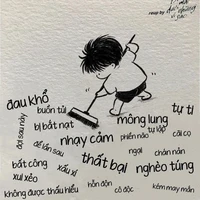 đau khổ
buồn tủi
mông lung
tự ti
đợi sau này
bị bắt nạt
tự lập
nhạy cảm
phiền não
cãi cọ
để lần sau
ngại
chán nản
bất công
xấu xí
thất bại
nghèo túng
xui xẻo
hỗn độn
cô độc
kém may mắn
không được thấu hiểu